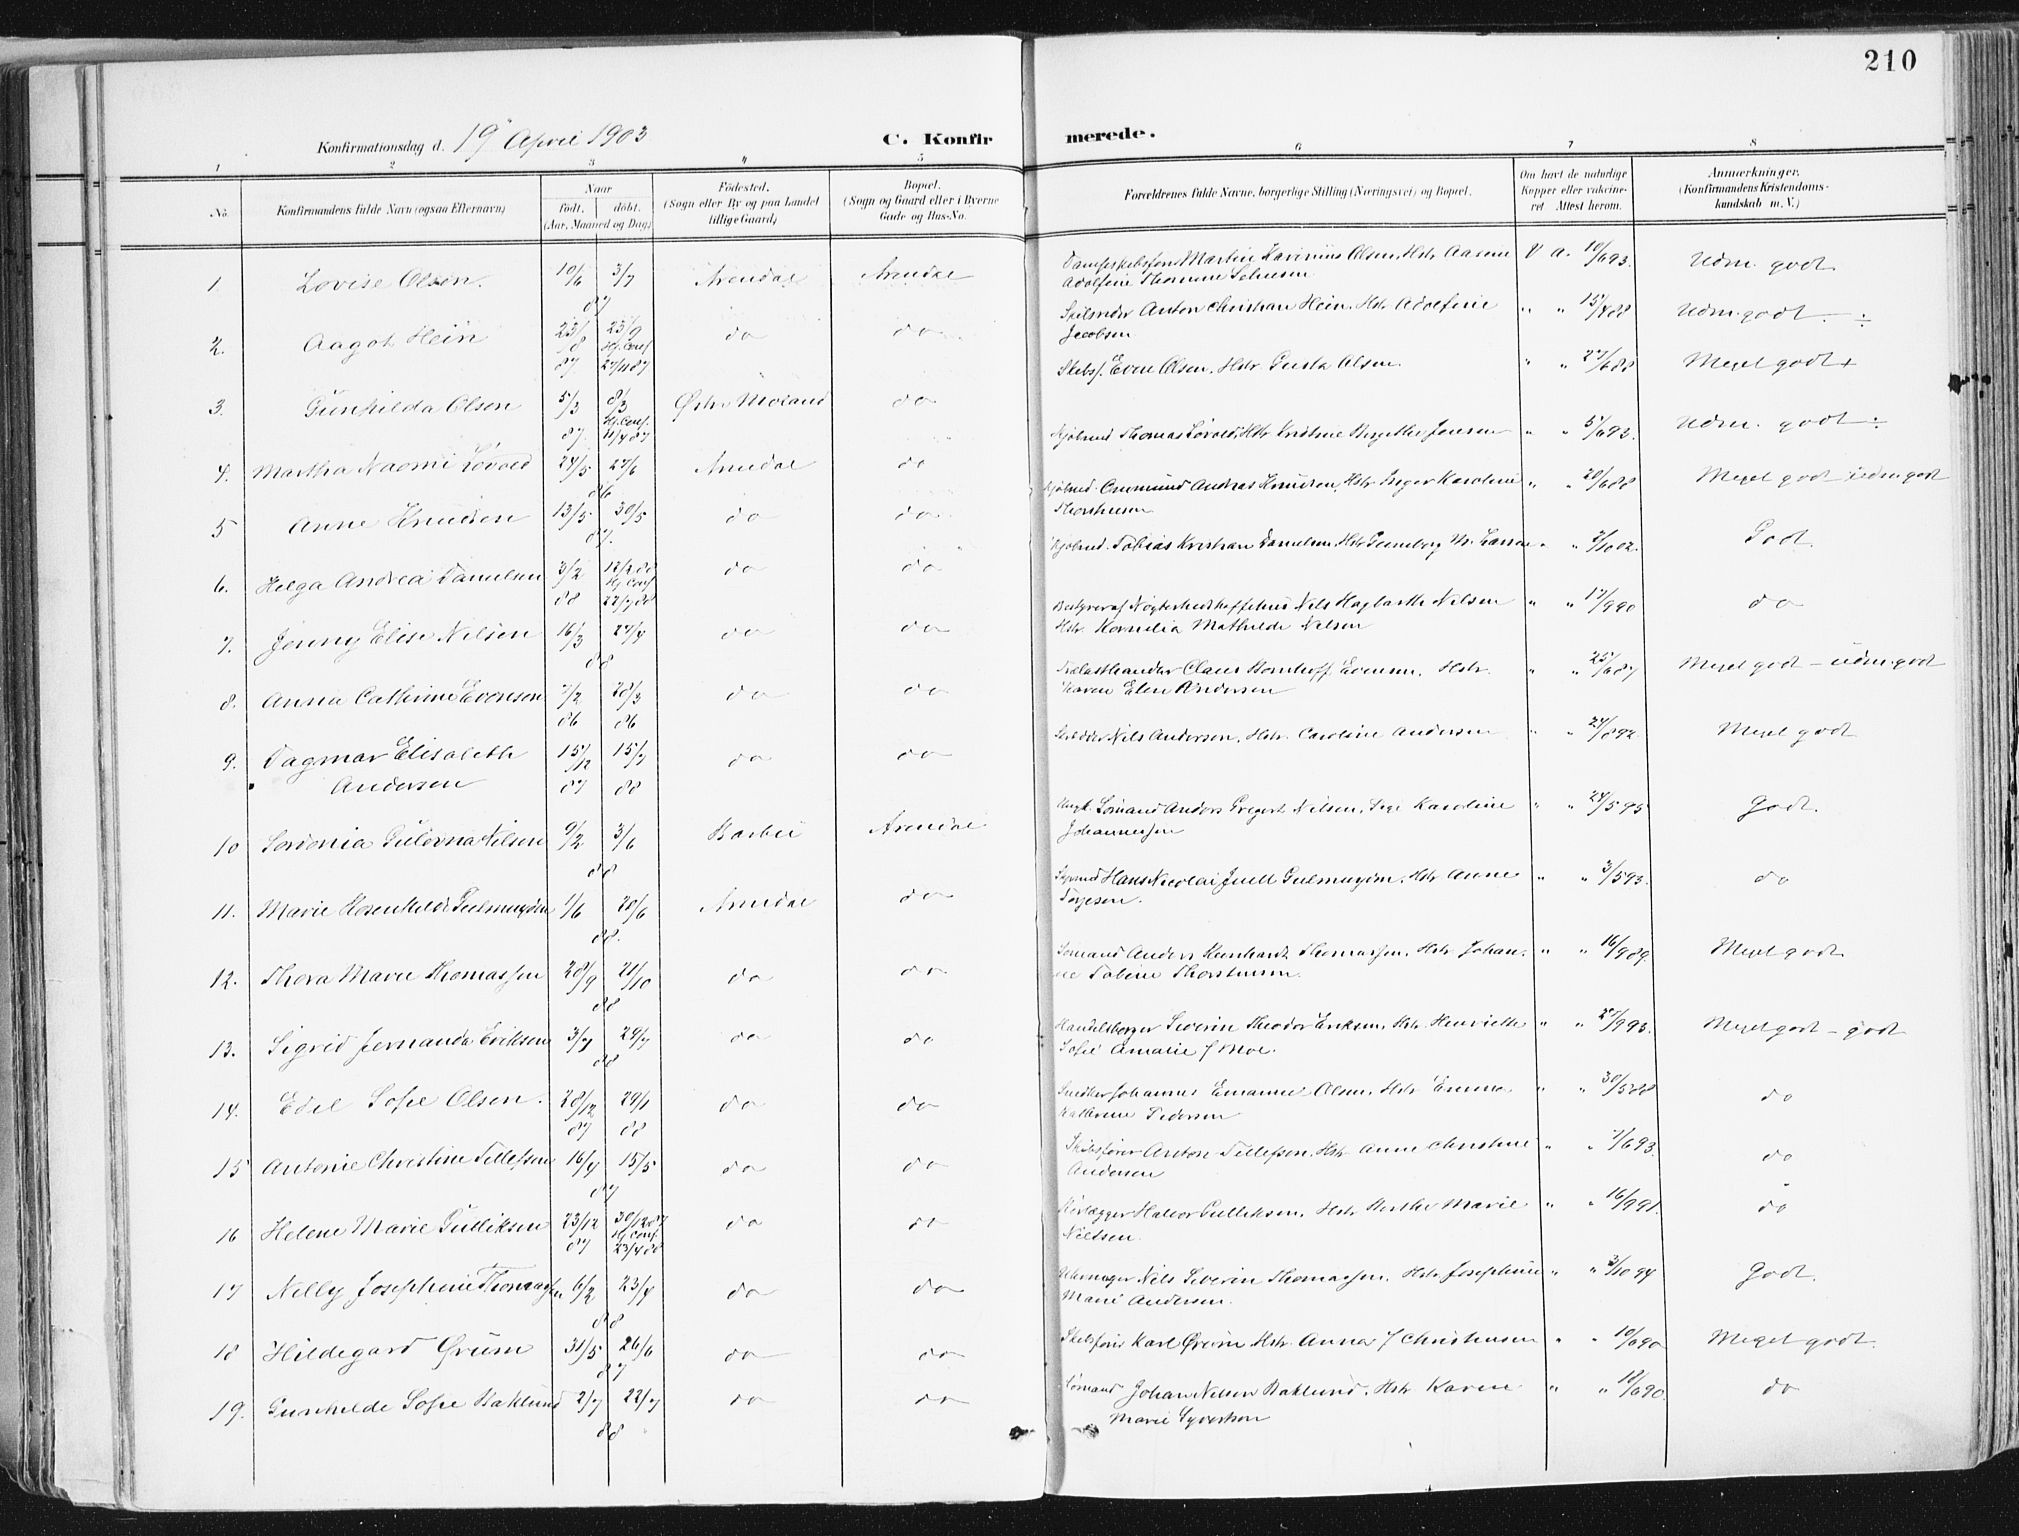 210
Konfirmationsdag d. 19 April 1903
C. Konfir merede.
1 2 3 4 5 6 7 8
No.
Konfirmandens fulde Navn (ogsaa Efternavn)
Naar
født, døbt.
(Aar, Maaned og Dag)
Födested.
(Sogn eller By og paa Landet
tillige Gaard)
Bopæl.
(Sogn og Gaard eller i Byerne
Gade og Hus-No.
Forældrenes fulde Navne, borgerlige Stilling (Næringsvei) og Bopæl.
Om havt de naturlige
Kopper eller vakcine-
ret Attest herom.
Anmærkninger.
(Konfirmandens Kristendoms-
kundskab m. V.)
1 Lovise Olsen. 10/6 3/7 87 Arendal Arendal Martin Olsen, Hstr Aasine V a. 10/6 93. Udm. godt
Adolfine Thomine
2. Aagot Hein 23/8 87 25/9 Hj. conf 27/11 87 do do Anton Christian Hein, Hstr Adolfine " " 15/4 88 Udm. godt ÷
Jacobsen
3. Gunhilda Olsen 5/3 87 8/3 Hj. Conf. 11/4 87 Østre Moland do Skibsf. Even Olsen, Hstr Gusta Olsen " " 27/6 88 Meget godt +
4. Martha Naomi Løvold 24/5 27/6 86 Arendal do Thomas Løvold, Hstr Kristine Bergethe Jensen " " 5/6 93. Udm. godt ÷
5 Anne Knudsen 13/5 30/5 87. do do Andreas Knudsen, Hstr Inger Karoline " " 20/6 88 Meget godt - udm. godt
Thorstensen
6. Helga Andrea Danielsen 3/2 88 12/2 88 Hj. conf 22/7 88 do do Tobias Kristian Danielsen, Hstr Gunneborg M. Larsen " " 7/10 02. Godt.
7. Jenny Elise Nilsen 16/3 27/4 88 do do Nils Hagbarth Nilsen " " 17/9 90 do
Hstr. Kornelia Mathilde Nilsen
8. Anna Cathrine Evensen 7/2 86 28/3 86 do do Claus Evensen, Hstr. " " 25/6 87 Meget godt - udm. godt
Karen Elen Andersen
9. Dagmar Elisabeth 15/12 87 15/7 88 do do Nils Andersen, Hstr. Caroline Andersen " " 24/8 92. Meget godt
Andersen
10 Sordenia Gulovna Nilsen 9/2 3/6 88 Barbu Arendal Sømand Anders Gregert Nilsen, Karoline " " 24/5 95 Godt.
Johannessen
11. Marie Hosenkilde Gulmugden 1/6 20/6 88. Arendal do Hans Nicolai Juell Gulmugden, Hstr Anne " " 3/5 93. do
Torjesen.
12. Thora Marie Thomassen 28/9 21/10 88 do do Sømand Anders Thomassen, Hstr Johan- " " 16/9 89. Meget godt
ne Tobine Thorstensen.
13. Sigrid Fernanda Eriksen 3/7 29/7 88 do do Handelsborger Severin Theodor Eriksen, Hstr. Henriette " " 27/9 93. Meget godt - godt
Sofie Amalie f Moe.
14. Edel Sofie Olsen. 28/12 87 29/1 88 do do Johannes Emanuel Olsen, Hstr Emma " " 30/5 88 do
Kathrine Pedersen
15 Antonie Christine Tellefsen 16/4 15/5 87 do do Skibsfører Anton Tellefsen, Hstr Anne Christine " " 7/6 93. do
Andersen
16 Helene Marie Gulliksen 23/12 87 30/12 87 Hj. conf. 23/4 88 do do Halvor Gulliksen, Hstr Berthe Marie " " 16/9 91. do
Nielsen.
17 Nelly Josephine Thomassen 6/2 23/4 88 do do Nils Severin Thomassen, Hstr Josephine " " 3/10 94 Godt.
Marie Andersen.
18 Hildegard Ørum 31/5 26/6 87 do do Karl Ørum Hstr. Anna f Christensen " " 10/6 90 Meget godt.
19. Gunhilde Sofie Baklund 2/7 22/7 88 do do Sømand Johan Nelsen Baklund, Hstr Karen " " 18/6 90. do
Marie Syvertsen